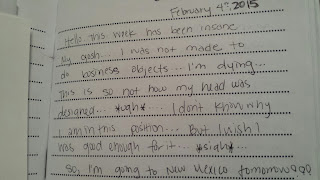 February 4th, 2015
Hello this week has been insane
My gosh... I was not made to
do business objects... I'm dying...
This is so not how my head was
designed... *ugh*.... I don't know why
I am in this position.... But I wish I
was good enough for it.... *sigh*...
So, I'm going to New Mexico tomorrow